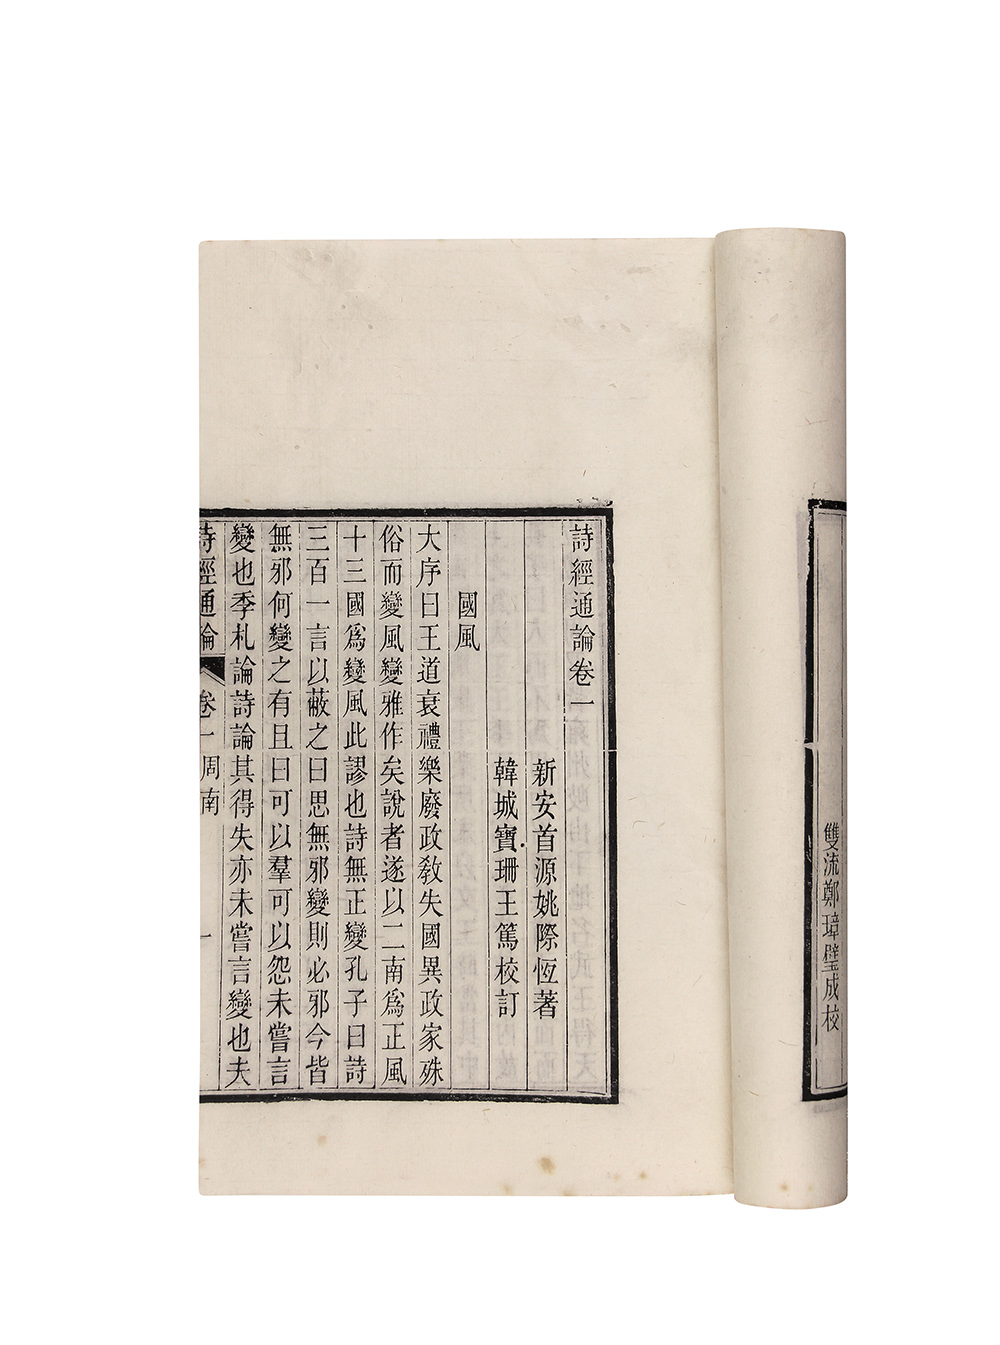 雙流鄭璋璧成校
詩經通論卷一
新安首源姚際恆著
韓城寶珊王篤校訂
國風
大序曰王道衰禮樂廢政敎失國異政家殊
俗而變風變雅作矣說者遂以二南爲正風
十三國爲變風此謬也詩無正變孔子曰詩
三百一言以蔽之曰思無邪變則必邪今皆
無邪何變之有且曰可以羣可以怨未嘗言
變也季札論詩論其得失亦未嘗言變也夫
詩經通論 卷一周南 一